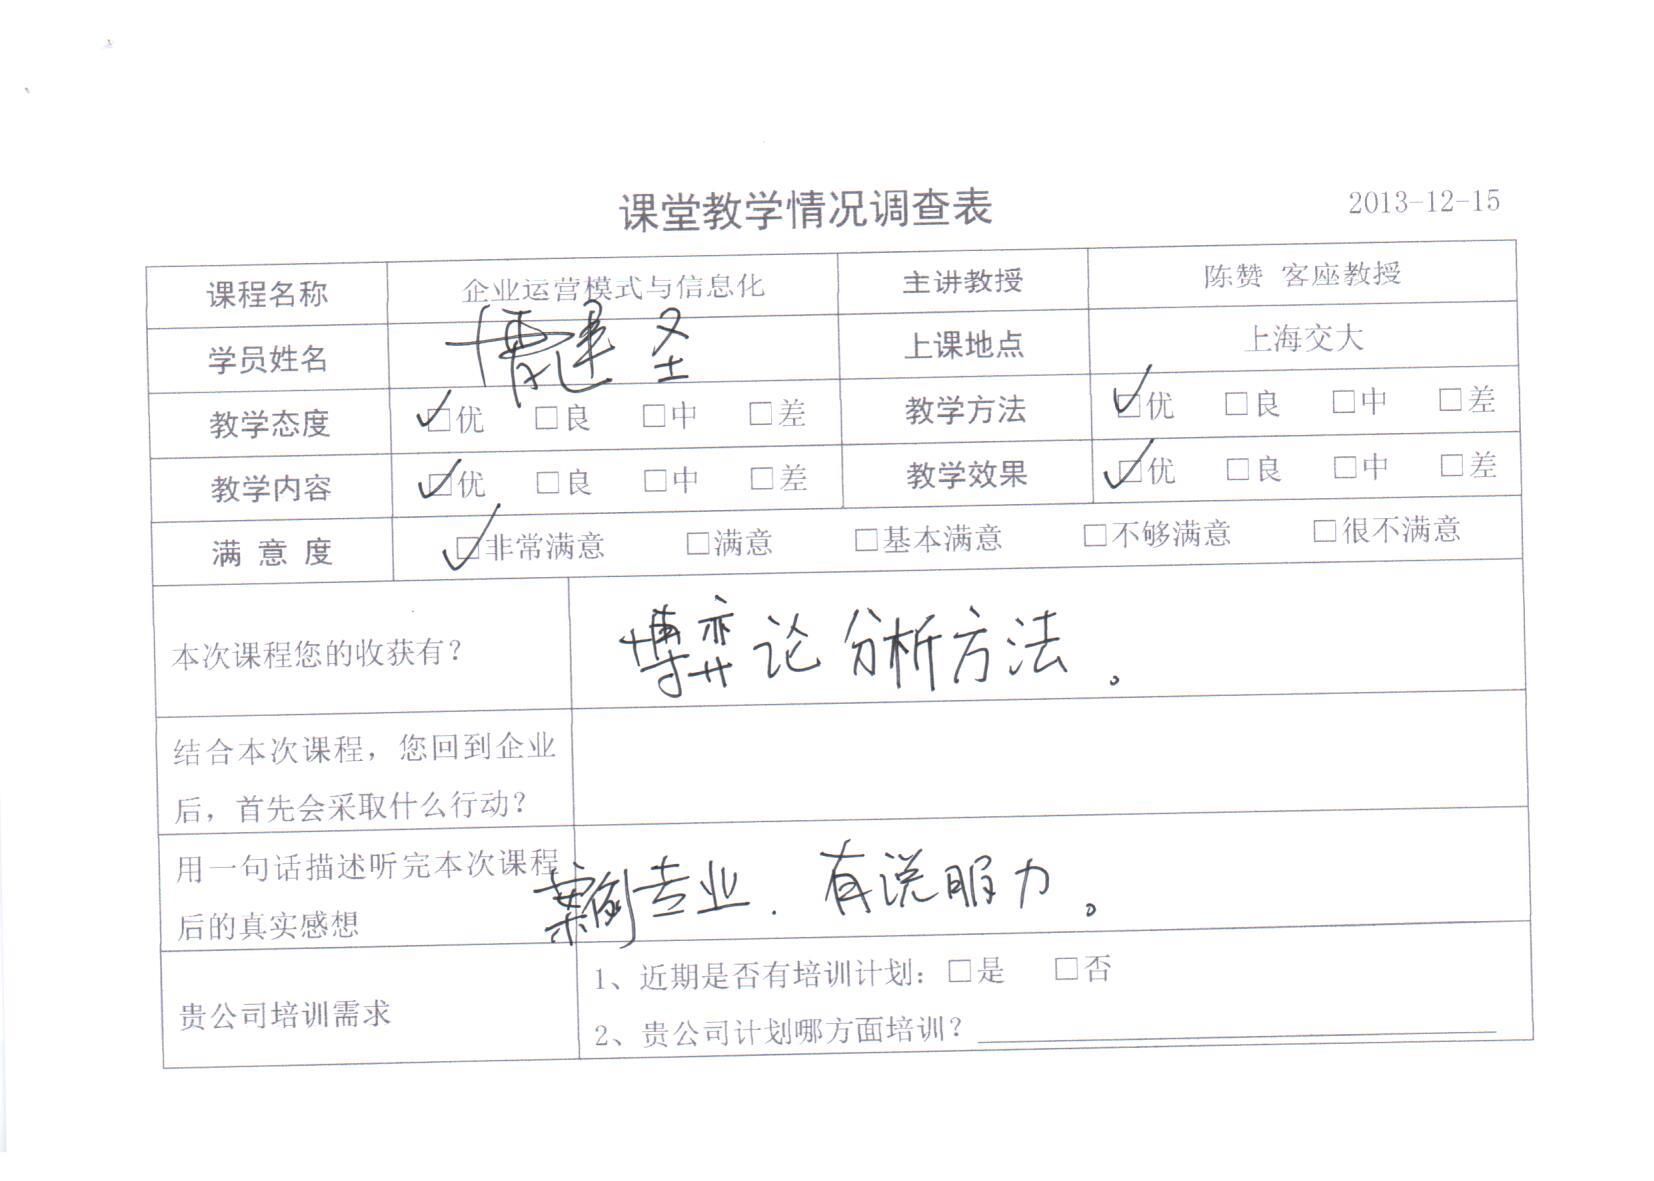 课堂教学情况调查表 2013-12-15
课程名称 企业运营模式与信息化 主讲教授 陈赞 客座教授
学员姓名 建圣 上课地点 上海交大
教学态度 ☑优 □良 □中 □差 教学方法 ☑优 □良 □中 □差
教学内容 ☑优 □良 □中 □差 教学效果 ☑优 □良 □中 □差
满 意 度 ☑非常满意 □满意 □基本满意 □不够满意 □很不满意
本次课程您的收获有? 博弈论分析方法。
结合本次课程，您回到企业
后，首先会采取什么行动?
用一句话描述听完本次课程
后的真实感想 案例专业.有说服力。
贵公司培训需求
1、近期是否有培训计划: □是 □否
2、贵公司计划哪方面培训?